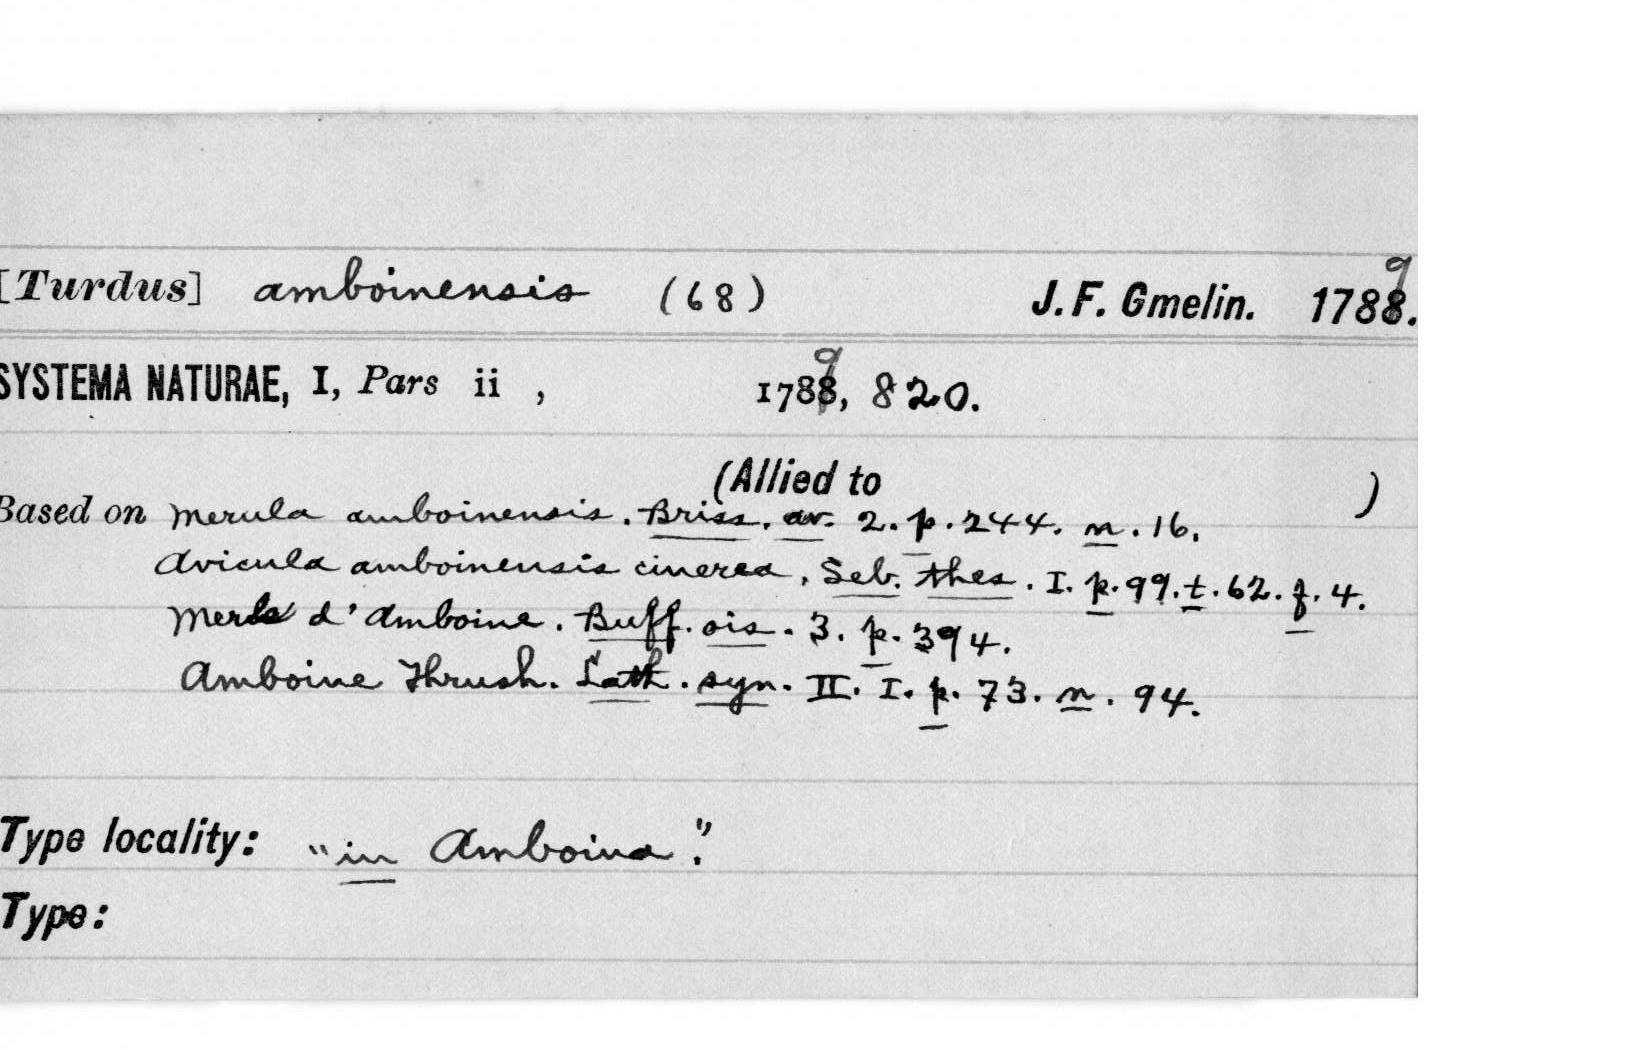 [Turdus] amboinensis (68) J. F. Gmelin. 1789.
SYSTEMA NATURAE, I, Pars ii , 1789, 820.
(Allied to )
Based on Merula amboinensis. Briss. av. 2. p. 244. n. 16.
Avicula amboinensis cinerea, Seb. thes. I. p. 99. t. 62. f. 4.
Merle d'Amboine. Buff. ois. 3. p. 394.
Amboine Thrush. Lath. syn. II. I. p. 73. n. 94.
Type locality: "in Amboina."
Type: